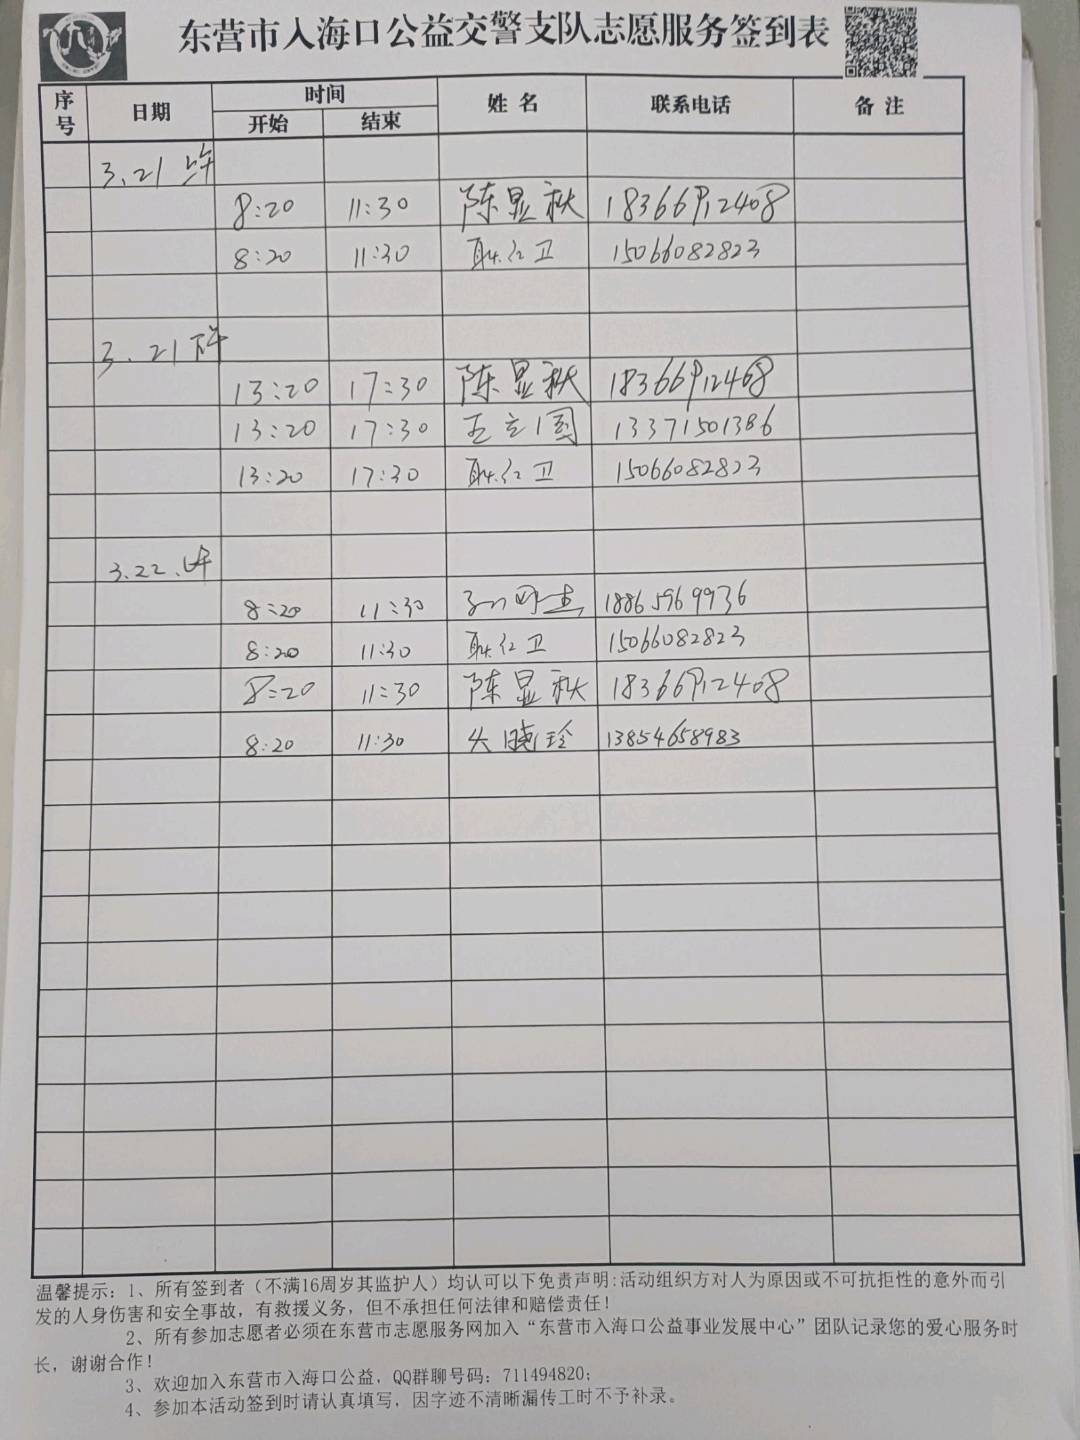 东营市入海口公益交警支队志愿服务签到表
序号 日期 时间 姓名 联系电话 备注
开始 结束
3.21 上午
8:20 11:30 陈显秋 18366912408
8:20 11:30 耿红卫 15066082823
3.21 下午
13:20 17:30 陈显秋 18366912408
13:20 17:30 王立国 13371501386
13:20 17:30 耿红卫 15066082823
3.22.上午
8:20 11:30 18865969936
8:20 11:30 耿红卫 15066082823
8:20 11:30 陈显秋 18366912408
8:20 11:30 晓玲 13854658983
温馨提示：1、所有签到者（不满16周岁其监护人）均认可以下免责声明:活动组织方对人为原因或不可抗拒性的意外而引
发的人身伤害和安全事故，有救援义务，但不承担任何法律和赔偿责任！
2、所有参加志愿者必须在东营市志愿服务网加入“东营市入海口公益事业发展中心”团队记录您的爱心服务时
长，谢谢合作！
3、欢迎加入东营市入海口公益，QQ群聊号码：711494820；
4、参加本活动签到时请认真填写，因字迹不清晰漏传工时不予补录。